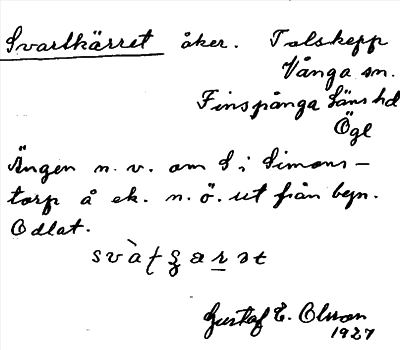 Svartkärret åker. Tolskepp
Vånga sn.
Finspånga läns hd
Ögl
Ängen n. v. om S i Simons-
torp å ek. n. ö. ut från byn.
Odlat.
Gustaf E. Olsson
1927